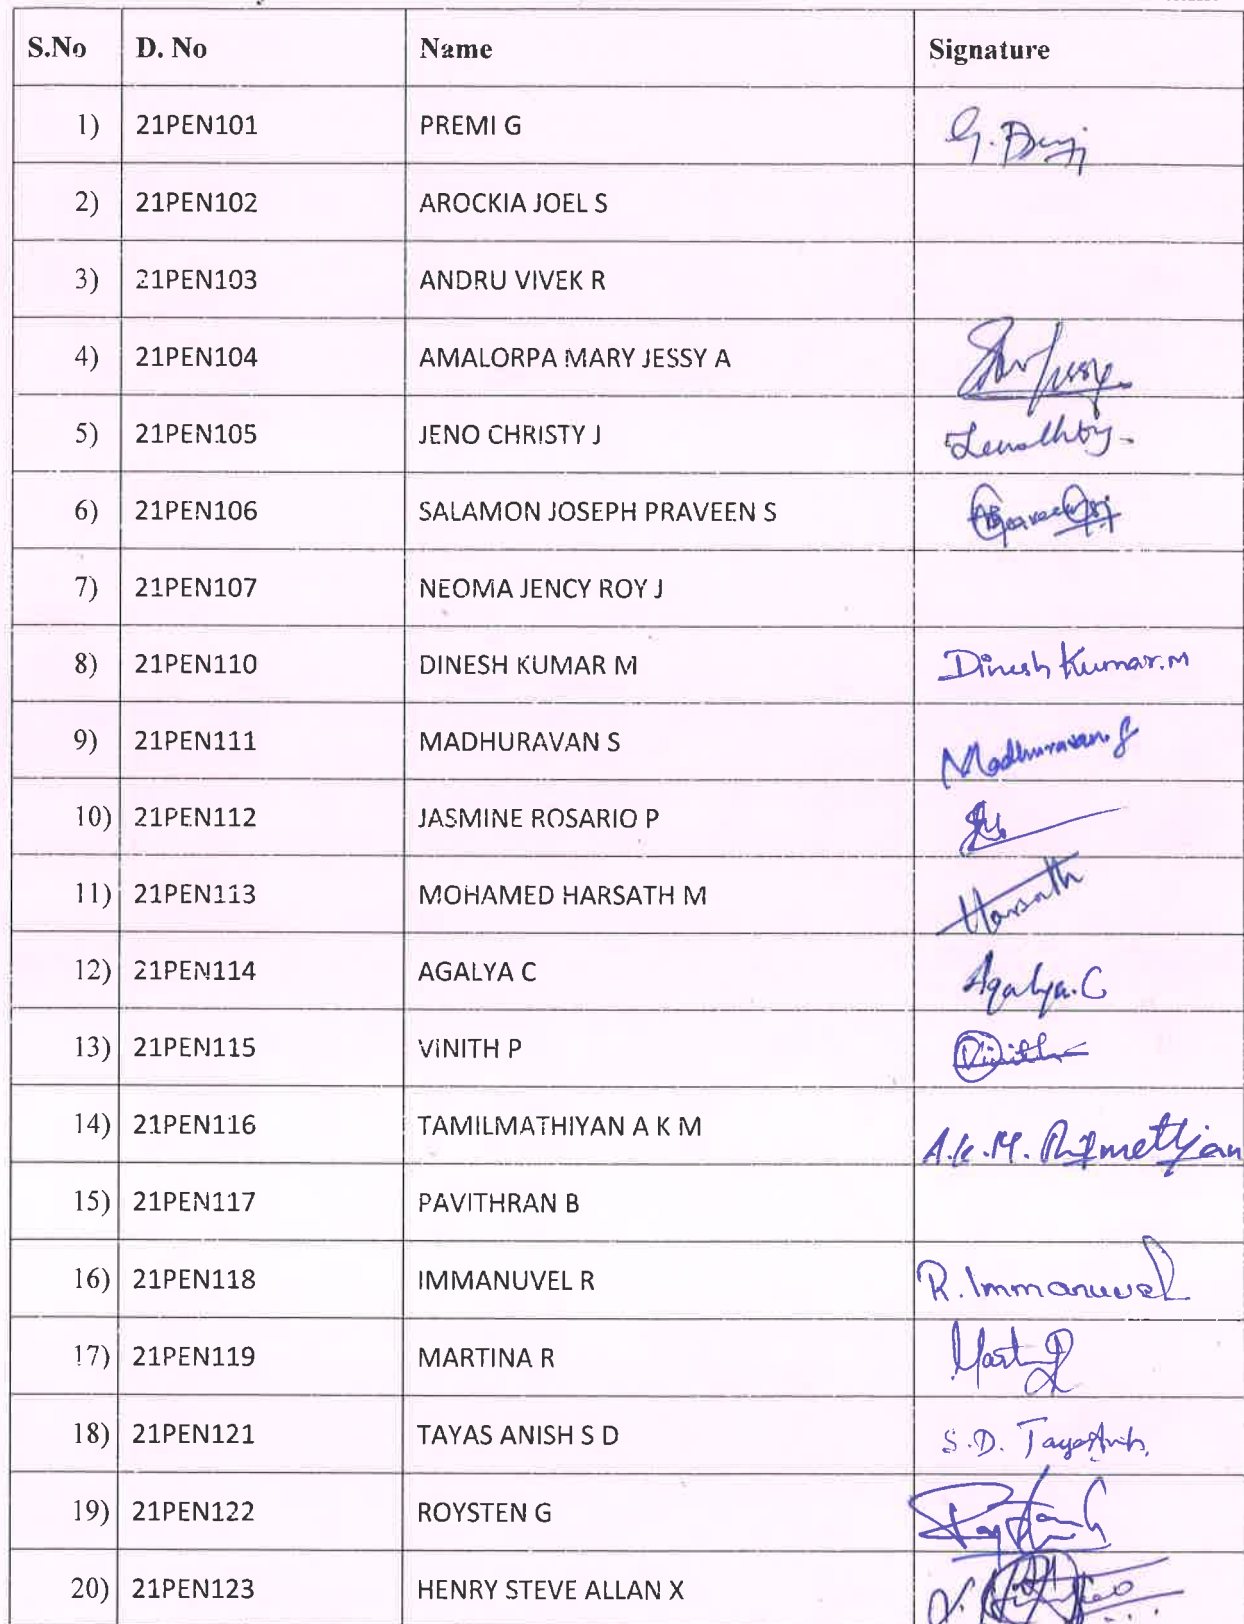 S.No D. No Name Signature
1) 21PEN101 PREMI G G.
2) 21PEN102 AROCKIA JOEL S
3) 21PEN103 ANDRU VIVEK R
4) 21PEN104 AMALORPA MARY JESSY A
5) 21PEN105 JENO CHRISTY J
6) 21PEN106 SALAMON JOSEPH PRAVEEN S
7) 21PEN107 NEOMA JENCY ROY J
8) 21PEN110 DINESH KUMAR M Dinesh Kumar.M
9) 21PEN111 MADHURAVAN S Madhuravan.S
10) 21PEN112 JASMINE ROSARIO P
11) 21PEN113 MOHAMED HARSATH M Harsath
12) 21PEN114 AGALYA C Agalya.C
13) 21PEN115 VINITH P Vinith
14) 21PEN116 TAMILMATHIYAN A K M A.K.M.
15) 21PEN117 PAVITHRAN B
16) 21PEN118 IMMANUVEL R R. Immanuvel
17) 21PEN119 MARTINA R
18) 21PEN121 TAYAS ANISH S D S.D.
19) 21PEN122 ROYSTEN G
20) 21PEN123 HENRY STEVE ALLAN X